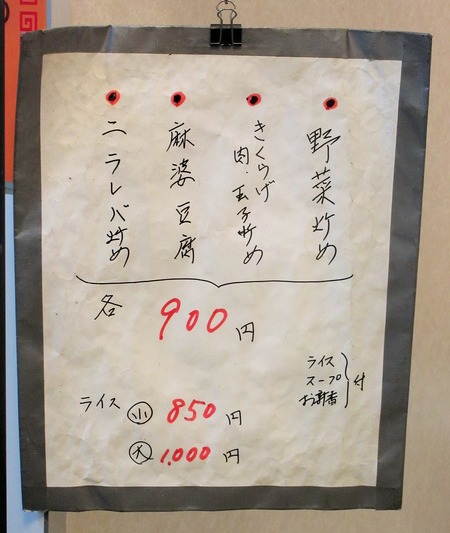 野菜炒め
きくらげ
肉・玉子炒め
麻婆豆腐
ニラレバ炒め
各 900円
ライス
スープ
お新香
付
ライス 小 850円
大 1,000円